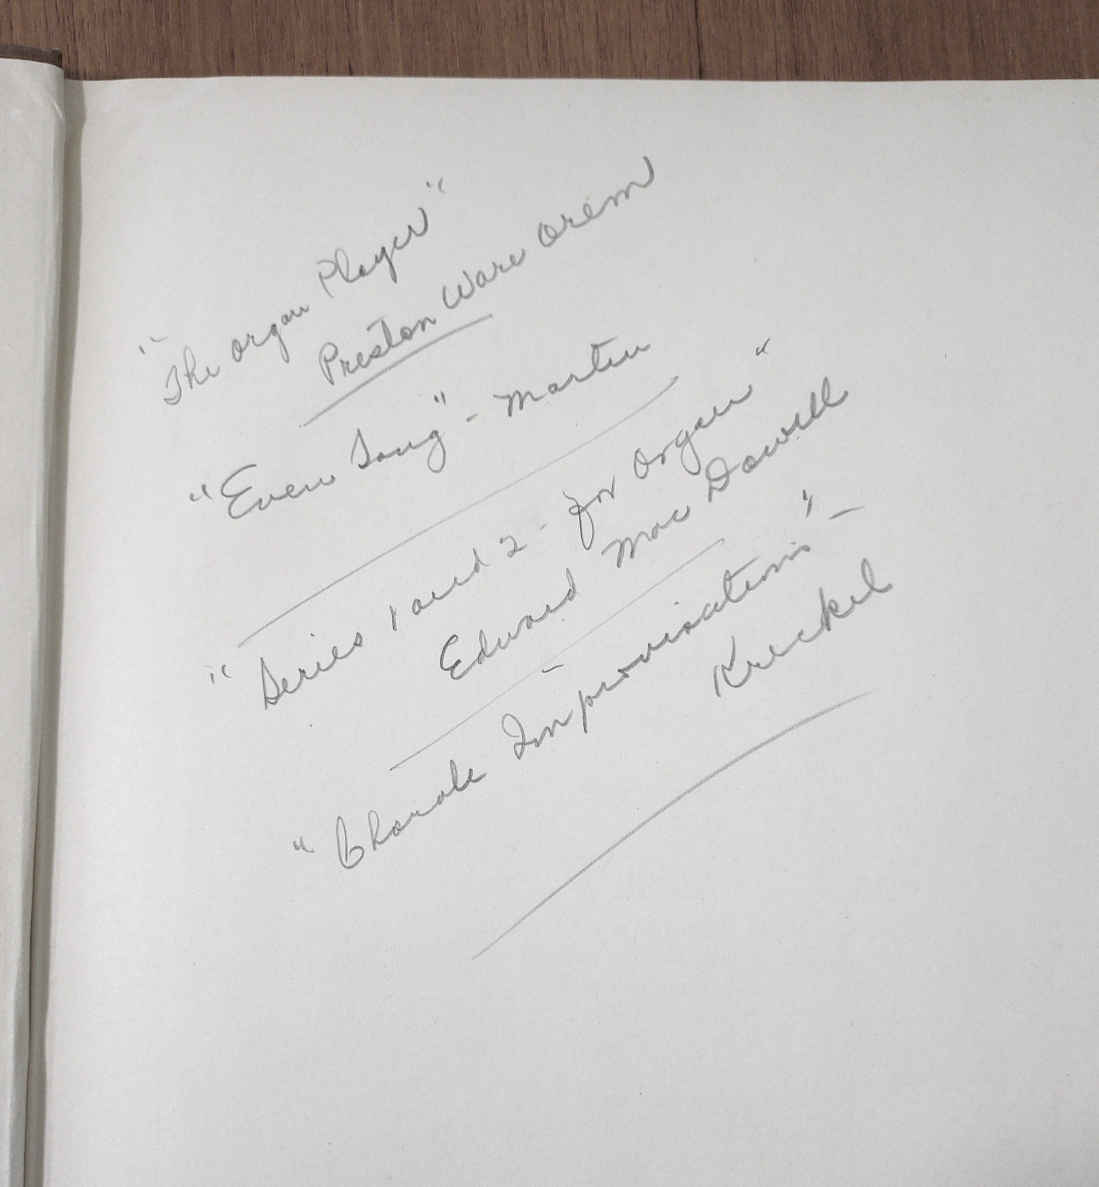 "The Organ Player"
Preston Ware Orem
"Even Song" - Martin
"Series 1 and 2 - for Organ"
Edward Mac Dowell
"Chorale Improvisations" -
Kreckel